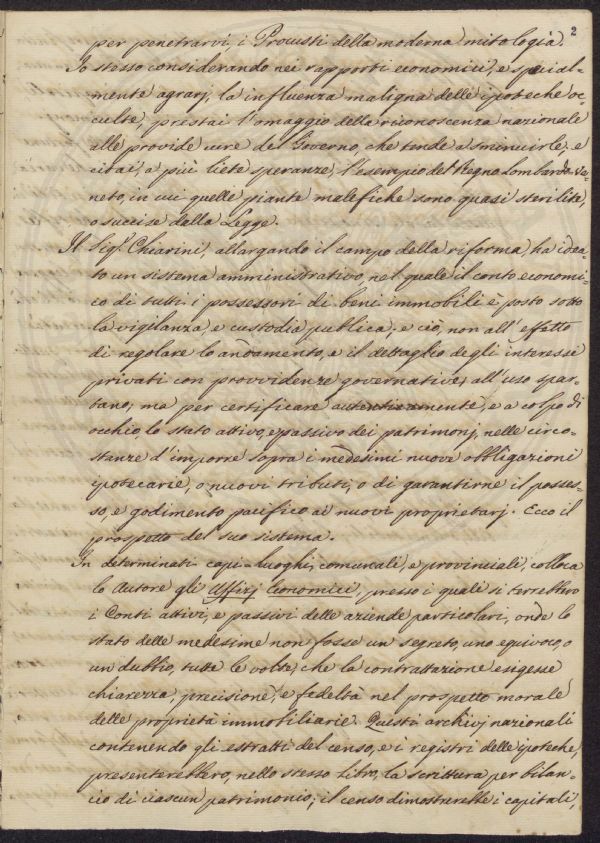 2
per penetrarvi, i Procusti della moderna mitologia.
Io stesso considerando nei rapporti economici, e special-
mente agrarj, la influenza maligna delle ipoteche oc-
culte, prestai l'omaggio della riconoscenza nazionale
alle provide cure del Governo, che tende a sminuirle; e
citai, a più liete speranze, l'esempio del Regno Lombardo-Ve-
neto, in cui quelle piante malefiche sono quasi sterilite,
o succise dalla Legge.
Il Sig.r Chiarini, allargando il campo della riforma, ha idea-
to un sistema amministrativo, nel quale il conto economi-
co di tutti i possessori di beni immobili è posto sotto
la vigilanza, e custodia pubblica, e ciò, non all'effetto
di regolare lo andamento, e il dettaglio degli interessi
privati con provvidenze governative, all'uso spar-
tano; ma per certificare autenticamente, e a colpo di
occhio, lo stato attivo, e passivo dei patrimonj, nelle circo-
stanze d'imporre sopra i medesimi nuove obbligazioni
ipotecarie, o nuovi tributi, o di garantirne il posses-
so, e godimento pacifico ai nuovi proprietarj. Ecco il
prospetto del suo sistema.
In determinati capi-luoghi, comunali, e provinciali, colloca
lo Autore gli Uffizj Economici, presso i quali si terrebbero
i Conti attivi, e passivi delle aziende particolari, onde lo
stato delle medesime non fosse un segreto, uno equivoco, o
un dubbio, tutte le volte, che la contrattazione esigesse
chiarezza, precisione, e fedeltà nel prospetto morale
delle proprietà immobiliarie. Questi archivj nazionali
contenendo gli estratti del censo, e i registri delle ipoteche,
presenterebbero, nello stesso Libro, la scrittura per bilan-
cio di ciascun patrimonio; il censo dimostrerebbe i capitali,